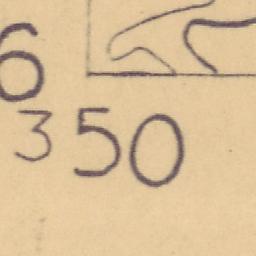 6
3 50